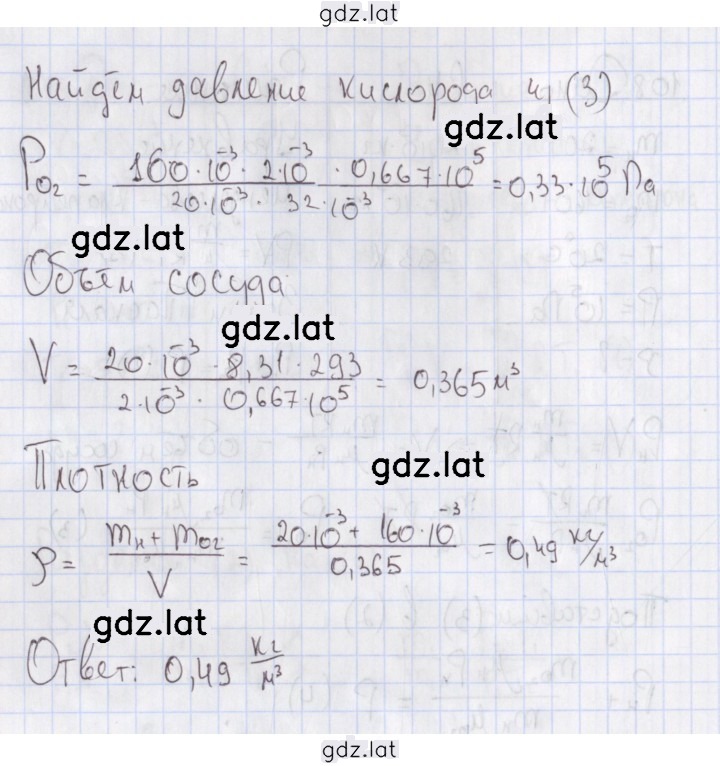 gdz.lat
Найдём давление кислорода из (3)
gdz.lat
P_{O2} = \frac{160·10^{-3}·2·10^{-3}·0,667·10^5}{20·10^{-3}·32·10^{-3}} = 0,33·10^5 Па
gdz.lat
Объём сосуда
gdz.lat
V = \frac{20·10^{-3}·8,31·293}{2·10^{-3}·0,667·10^5} = 0,365 м^3
Плотность
gdz.lat
ρ = \frac{m_н + m_{O2}}{V} = \frac{20·10^{-3} + 160·10^{-3}}{0,365} = 0,49 кг/м^3
gdz.lat
Ответ: 0,49 \frac{кг}{м^3}
gdz.lat